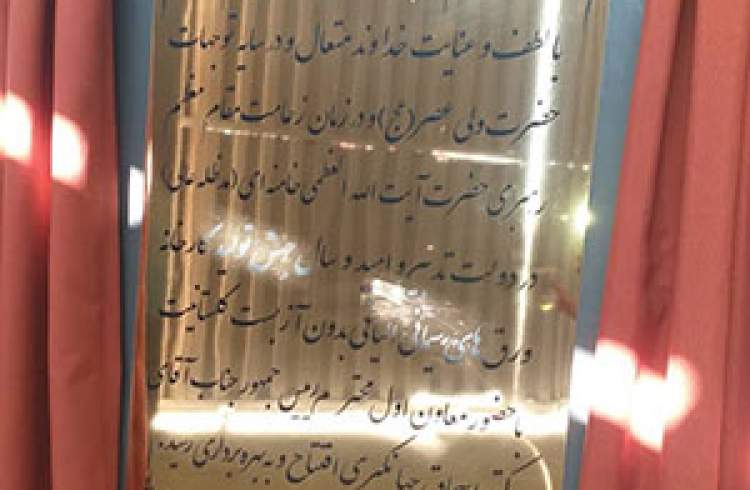 با لطف و عنایت خداوند متعال و در سایه توجهات
حضرت ولی عصر (عج) و در زمان زعامت مقام معظم
رهبری حضرت آیت الله العظمی خامنه ای (مدظله عالی)
در دولت تدبیر و امید و سال جهش تولید کارخانه
ورق های الیافی بدون آزبست گلستانیت
با حضور معاون اول محترم رئیس جمهور جناب آقای
دکتر اسحاق جهانگیری افتتاح و به بهره برداری رسید